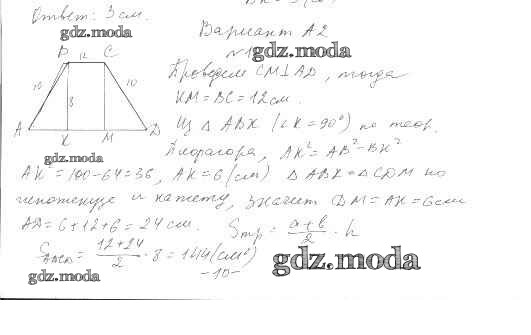 Ответ: 3 см.
gdz.moda
Вариант А2
№1
gdz.moda
B 12 C
Проведем CM⊥AD, тогда
10 8 10
KM=BC=12см.
Из △ABK (∠K=90°) по теор.
A K M D
Пифагора, AK²=AB²-BK²
gdz.moda
AK²=100-64=36, AK=6(см) △ABK=△CDM по
гипотенузе и катету, значит DM=AK=6см
AD=6+12+6=24см. Sтр = (a+b)/2 · h
SABCD = (12+24)/2 · 8=144(см²)
gdz.moda
-10-
gdz.moda